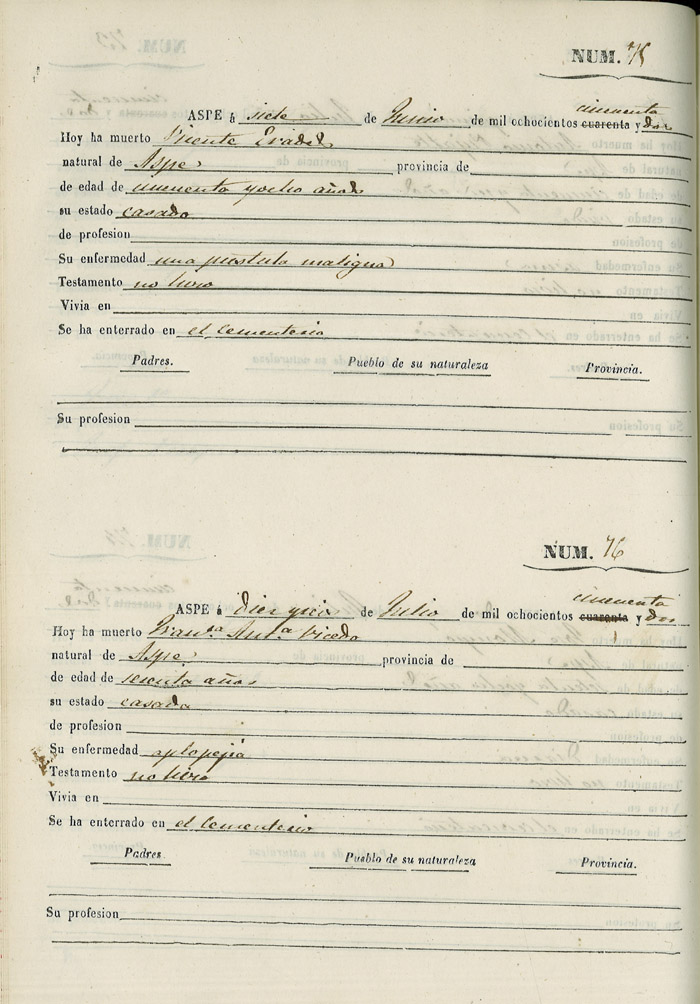 NUM. 75
cincuenta
ASPE á siete de Junio de mil ochocientos cuarenta y dos
Hoy ha muerto Vicente
natural de Aspe provincia de
de edad de cincuenta y ocho años
su estado casado
de profesion
Su enfermedad una pustula maligna
Testamento no hizo
Vivia en
Se ha enterrado en el Cementerio
Padres. Pueblo de su naturaleza Provincia.
Su profesion
NUM. 76
cincuenta
ASPE á de Julio de mil ochocientos cuarenta y dos
Hoy ha muerto Fran.ca Ant.a Vicedo
natural de Aspe provincia de
de edad de sesenta años
su estado casada
de profesion
Su enfermedad aplopejia
Testamento no hizo
Vivia en
Se ha enterrado en el Cementerio
Padres. Pueblo de su naturaleza Provincia.
Su profesion